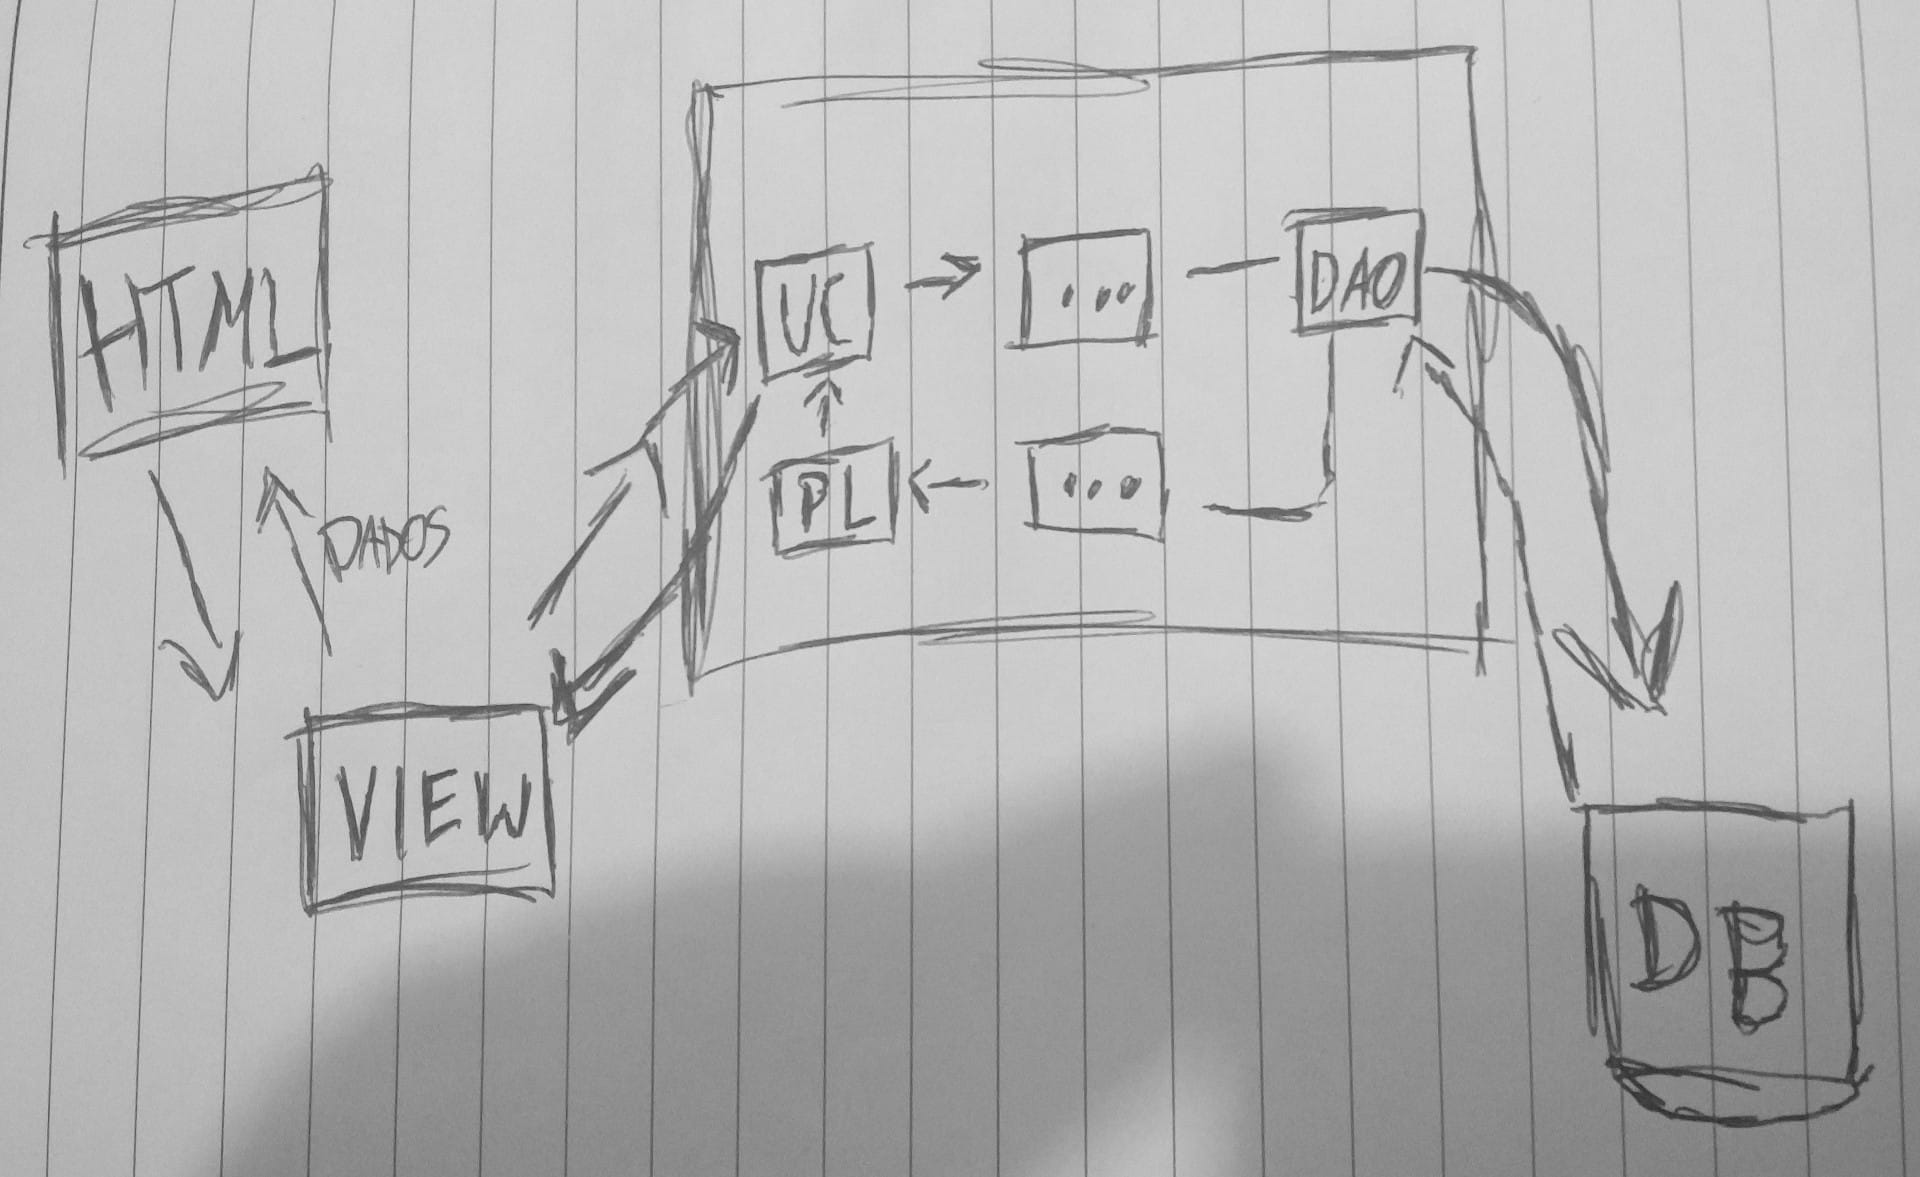 HTML
DADOS
VIEW
UC
...
DAO
PL
...
DB